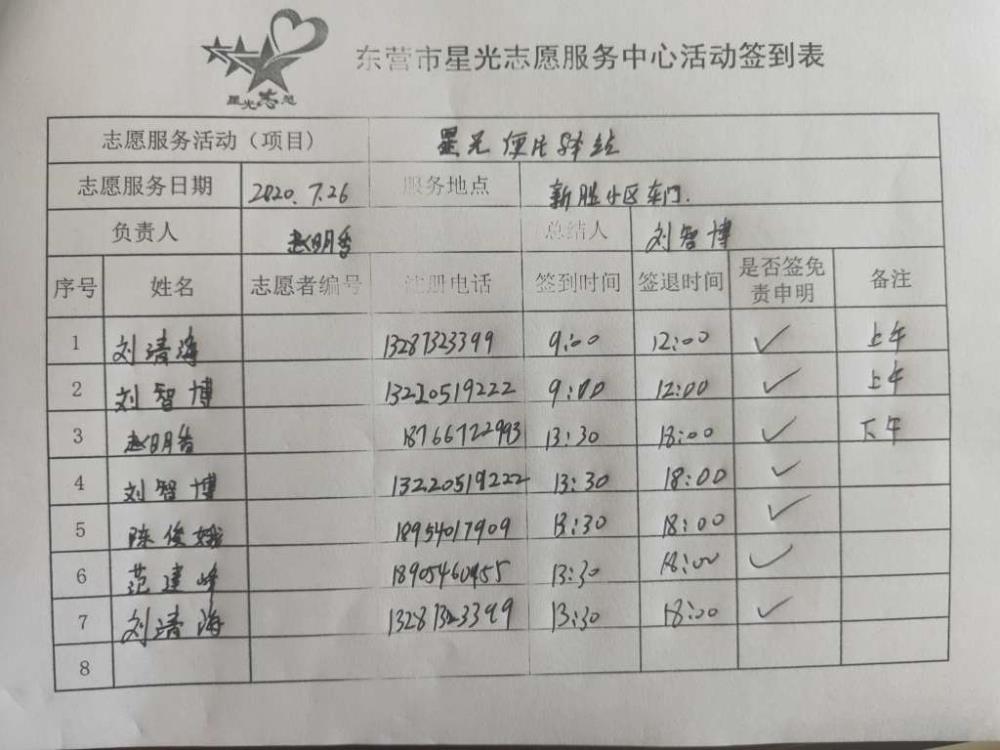 星光志愿
东营市星光志愿服务中心活动签到表
志愿服务活动（项目） 星光便民驿站
志愿服务日期 2020.7.26 服务地点 新胜小区东门.
负责人 赵明香 总结人 刘智博
序号 姓名 志愿者编号 注册电话 签到时间 签退时间 是否签免责申明 备注
1 刘清海 13287323399 9:00 12:00 ✓ 上午
2 刘智博 13220519222 9:00 12:00 ✓ 上午
3 赵明香 18766722993 13:30 18:00 ✓ 下午
4 刘智博 13220519222 13:30 18:00 ✓
5 陈俊娥 18954017909 13:30 18:00 ✓
6 范建峰 13:30 18:00 ✓
7 刘清海 13287323399 13:30 18:00 ✓
8